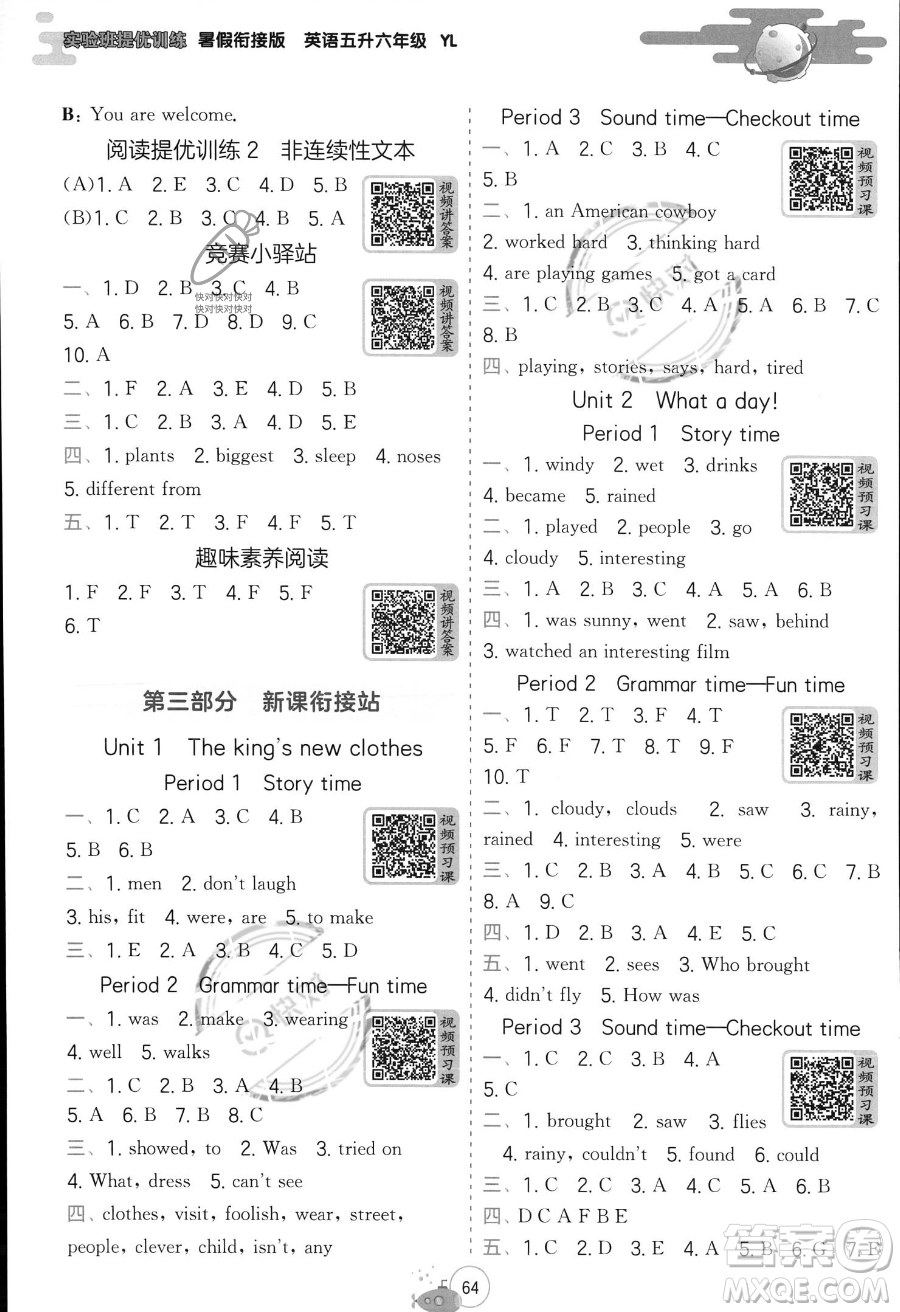 实验班提优训练 暑假衔接版 英语五升六年级 YL
B: You are welcome.
阅读提优训练2 非连续性文本
(A)1. A 2. E 3. C 4. D 5. B
(B)1. C 2. B 3. C 4. B 5. A
视频讲答案
竞赛小驿站
一、1. D 2. B 3. C 4. B
5. A 6. B 7. D 8. D 9. C
10. A
视频讲答案
快对快对快对
快对快对快对
二、1. F 2. A 3. E 4. D 5. B
三、1. C 2. D 3. B 4. A
四、1. plants 2. biggest 3. sleep 4. noses
5. different from
五、1. T 2. T 3. F 4. F 5. T
趣味素养阅读
1. F 2. F 3. T 4. F 5. F
6. T
视频讲答案
第三部分 新课衔接站
Unit 1 The king's new clothes
Period 1 Story time
一、1. C 2. A 3. C 4. B
5. B 6. B
视频预习课
二、1. men 2. don't laugh
3. his, fit 4. were, are 5. to make
三、1. E 2. A 3. B 4. C 5. D
Period 2 Grammar time—Fun time
一、1. was 2. make 3. wearing
4. well 5. walks
视频预习课
二、1. C 2. B 3. B 4. B
5. A 6. B 7. B 8. C
三、1. showed, to 2. Was 3. tried on
4. What, dress 5. can't see
四、clothes, visit, foolish, wear, street,
people, clever, child, isn't, any
Period 3 Sound time—Checkout time
一、1. A 2. C 3. B 4. C
5. B
视频预习课
二、1. an American cowboy
2. worked hard 3. thinking hard
4. are playing games 5. got a card
三、1. C 2. B 3. C 4. A 5. A 6. B 7. C
8. B
四、playing, stories, says, hard, tired
Unit 2 What a day!
Period 1 Story time
一、1. windy 2. wet 3. drinks
4. became 5. rained
视频预习课
二、1. played 2. people 3. go
4. cloudy 5. interesting
三、1. A 2. C 3. A 4. C 5. A 6. B
四、1. was sunny, went 2. saw, behind
3. watched an interesting film
Period 2 Grammar time—Fun time
一、1. T 2. T 3. F 4. T
5. F 6. F 7. F 8. F 9. F
10. T
视频预习课
二、1. cloudy, clouds 2. saw 3. rainy,
rained 4. interesting 5. were
三、1. C 2. C 3. B 4. A 5. C 6. C 7. B
8. A 9. C
四、1. D 2. B 3. A 4. E 5. C
五、1. went 2. sees 3. Who brought
4. didn't fly 5. How was
Period 3 Sound time—Checkout time
一、1. C 2. C 3. B 4. A
5. C
视频预习课
二、1. brought 2. saw 3. flies
4. rainy, cloudy 5. found 6. could
三、1. C 2. B 3. C 4. A 5. C 6. B
四、D C A F B E
五、1. C 2. F 3. D 4. A 5. B 6. G 7. E
64
快对
快对
答案圈
MXQE.COM